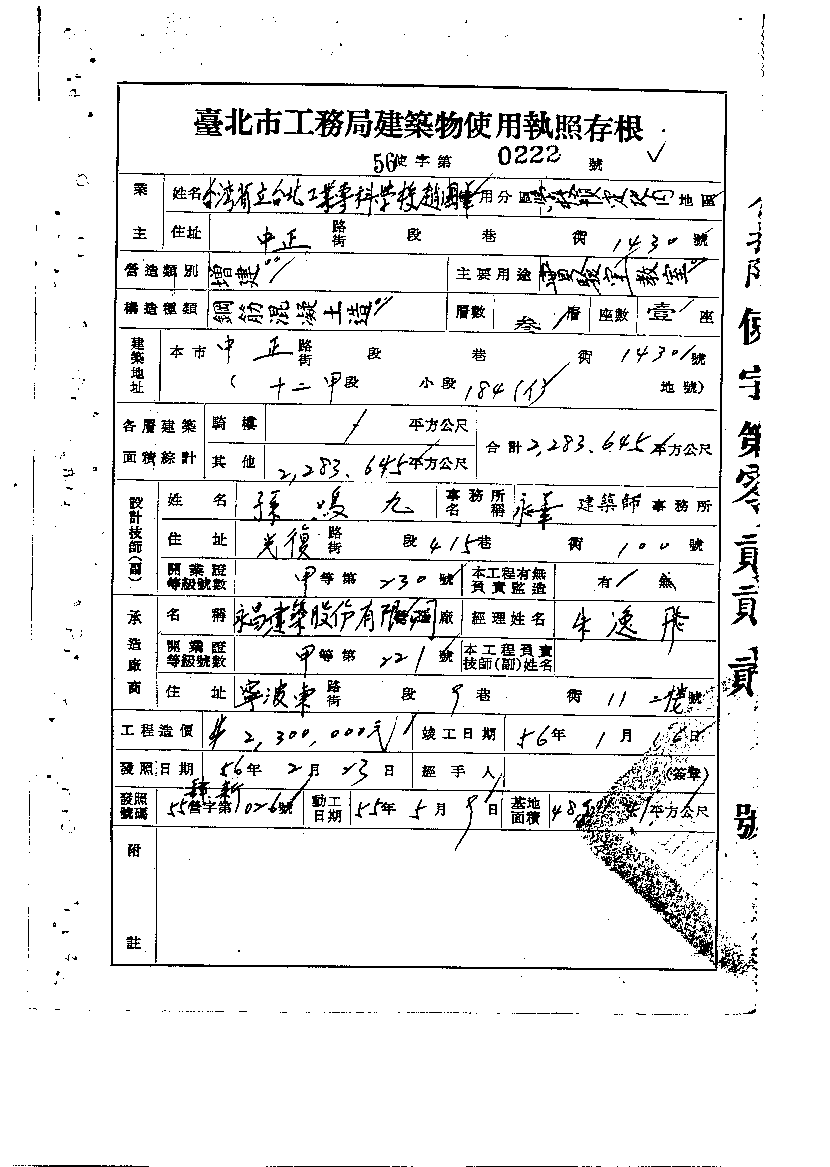 臺北市工務局建築物使用執照存根
56使字第 0222 號
業主 姓名 台湾省立台北工業專科学校 用分區 地區
住址 中正 路街 段 巷 街 1430 號
營造類別 增建 主要用途 實驗室教室
構造種類 鋼筋混凝土造 層數 叁 層 座數 壹 座
建築地址 本市 中正 路街 段 巷 街 1430 號
( 十二甲 段 小段 184 地號)
各層建築面積綜計 騎樓 平方公尺 合計 2,283.645 平方公尺
其他 2,283.645 平方公尺
設計技師(副) 姓名 孫鴻九 事務所名稱 永華 建築師事務所
住址 光復 路街 段 415 巷 街 100 號
開業證等級號數 甲 等第 230 號 本工程有無負責監造 有 無
承造廠商 名稱 永昌建築股份有限 廠 經理姓名 朱逸飛
開業證等級號數 甲 等第 221 號 本工程負責技師(副)姓名
住址 寧波東 路街 段 9 巷 街 11 二楼 號
工程造價 2,300,000元 竣工日期 56年 1月 16日
發照日期 56年 2月 23日 經手人 (簽章)
發照號碼 55營字第1026號 動工日期 55年 5月 9日 基地面積 平方公尺
附註
使字第零貳貳貳 號